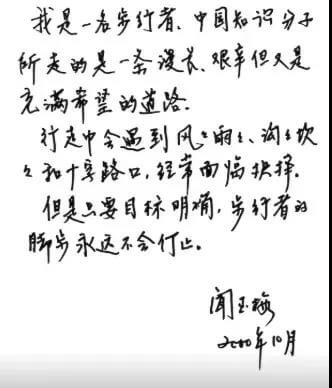 我是一名步行者、中国知识分子
所走的是一条漫长、艰辛但又是
充满希望的道路.
行走中会遇到风々雨々、沟々坎
々和十字路口,经常面临抉择.
但是只要目标明确,步行者的
脚步永远不会停止。
闻玉梅
2000年10月